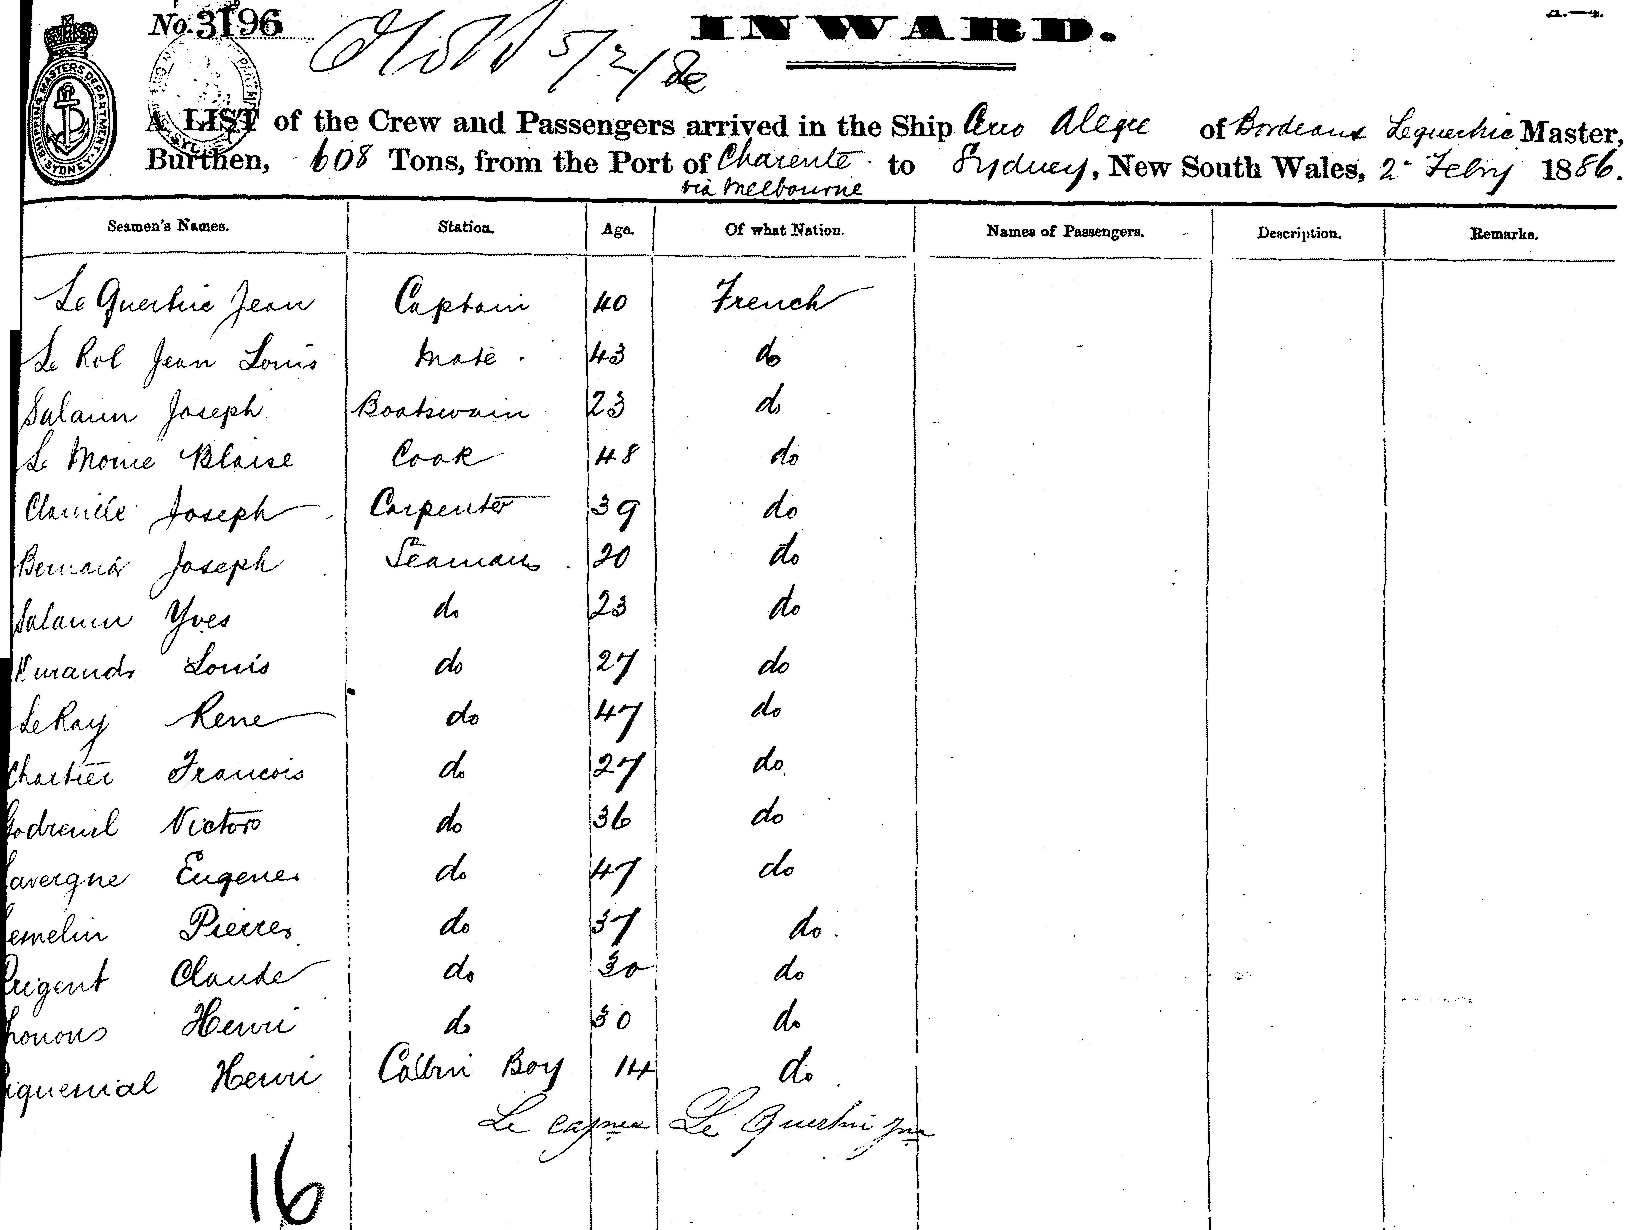 No. 3196
5/2/86
INWARD.
A LIST of the Crew and Passengers arrived in the Ship of Bordeaux Lequerhic Master,
Burthen, 608 Tons, from the Port of Charente to Sydney, New South Wales, 2 Febry 1886.
via Melbourne
Seamen's Names. Station. Age. Of what Nation. Names of Passengers. Description. Remarks.
Le Querhic Jean Captain 40 French
Le Rol Jean Louis Mate 43 do
Salaun Joseph Boatswain 23 do
Le Moine Blaise Cook 48 do
Joseph Carpenter 39 do
Joseph Seaman 20 do
Salaun Yves do 23 do
Durand Louis do 27 do
Le Ray Rene do 47 do
Chartier Francois do 27 do
Victor do 36 do
avergne Eugene do 47 do
emelin Pierre do 37 do
rigent Claude do 30 do
Henri do 30 do
Henri Cabin Boy 14 do
Le Le Querhic
16